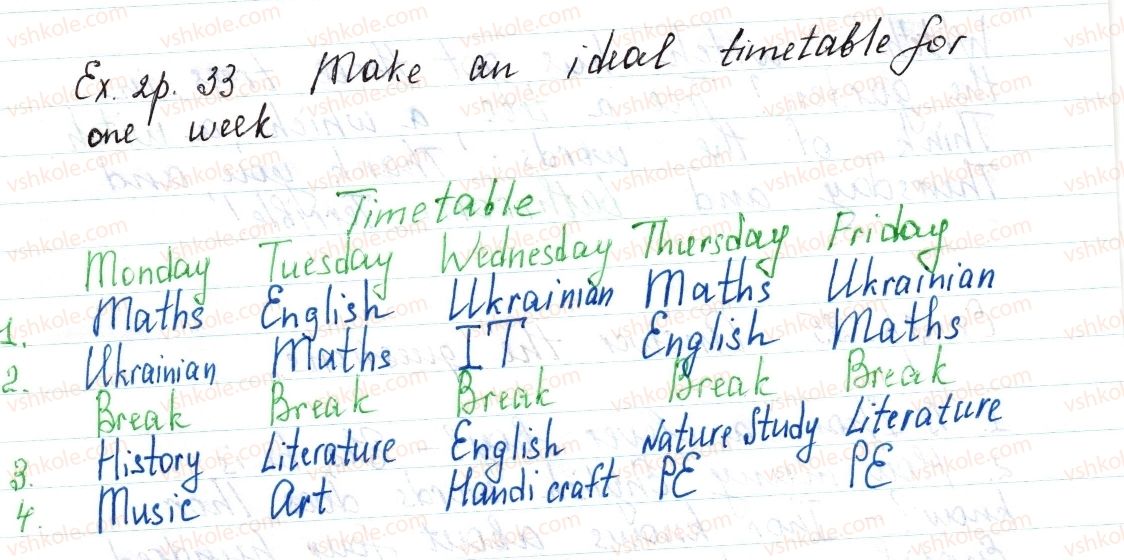 Ex. 2p. 33 Make an ideal timetable for
one week
Timetable
Monday Tuesday Wednesday Thursday Friday
1. Maths English Ukrainian Maths Ukrainian
2. Ukrainian Maths IT English Maths
Break Break Break Break Break
3. History Literature English Nature Study Literature
4. Music Art Handicraft PE PE
vshkole.com